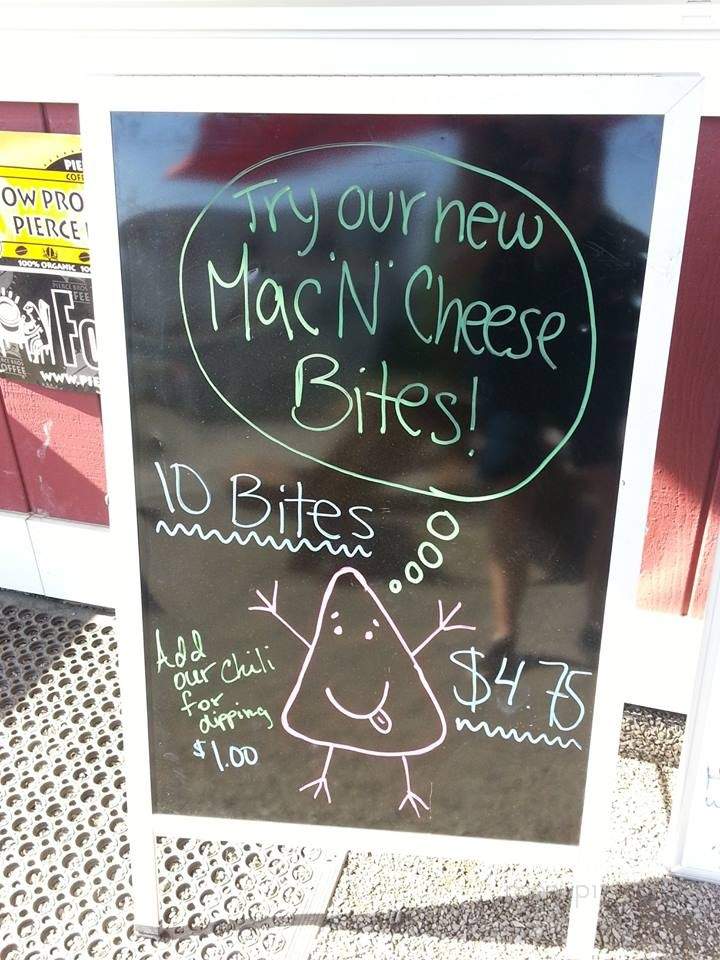 Try our new
Mac 'N' Cheese
Bites!
10 Bites
Add
our Chili
for
dipping
$1.00
$4.75
PIE
COF
OW PRO
PIERCE
100% ORGANIC 10
PIERCE BROS
FEE
OFFEE
WWW.PIE